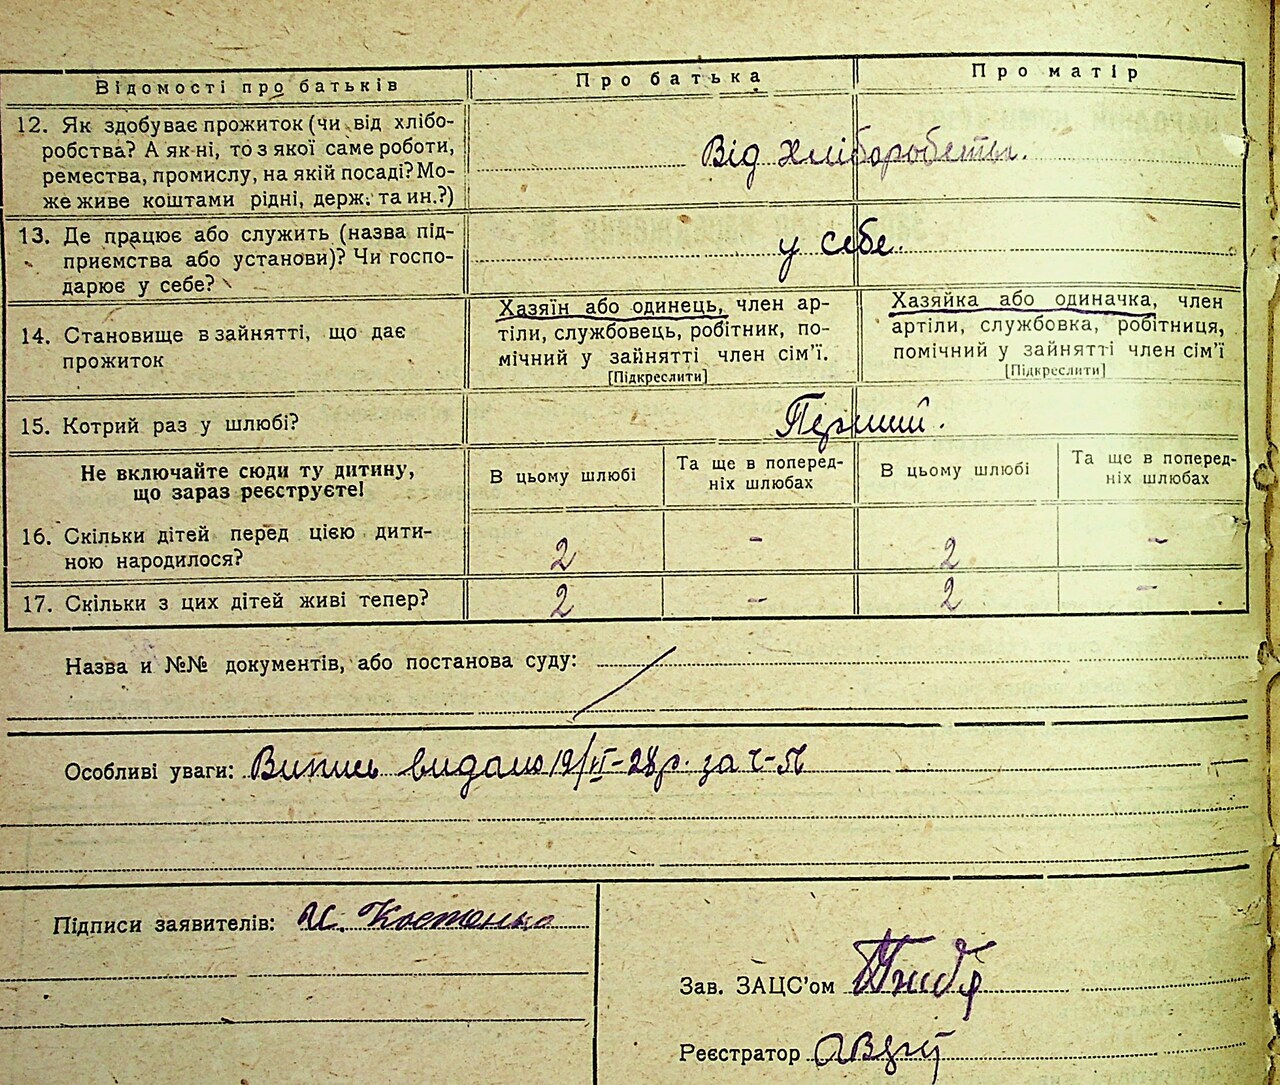 Відомості про батьків
Про батька
Про матір
12. Як здобуває прожиток (чи від хлібо-
робства? А як ні, то з якої саме роботи,
ремества, промислу, на якій посаді? Мо-
же живе коштами рідні, держ. та ин.?)
Від хліборобства.
13. Де працює або служить (назва під-
приємства або установи)? Чи госпо-
дарює у себе?
у себе.
14. Становище в зайнятті, що дає
прожиток
Хазяїн або одинець, член ар-
тілі, службовець, робітник, по-
мічний у зайнятті член сім’ї.
[Підкреслити]
Хазяйка або одиначка, член
артіли, службовка, робітниця,
помічний у зайнятті член сім’ї
[Підкреслити]
15. Котрий раз у шлюбі?
Перший.
Не включайте сюди ту дитину,
що зараз реєструєте!
В цьому шлюбі
Та ще в поперед-
ніх шлюбах
В цьому шлюбі
Та ще в поперед-
ніх шлюбах
16. Скільки дітей перед цією дити-
ною народилося?
2 - 2 -
17. Скільки з цих дітей живі тепер?
2 - 2 -
Назва и №№ документів, або постанова суду:
Особливі уваги: Випись видано 19/VI-28р. за ч-
Підписи заявителів: И. Костенко
Зав. ЗАЦС’ом
Реєстратор